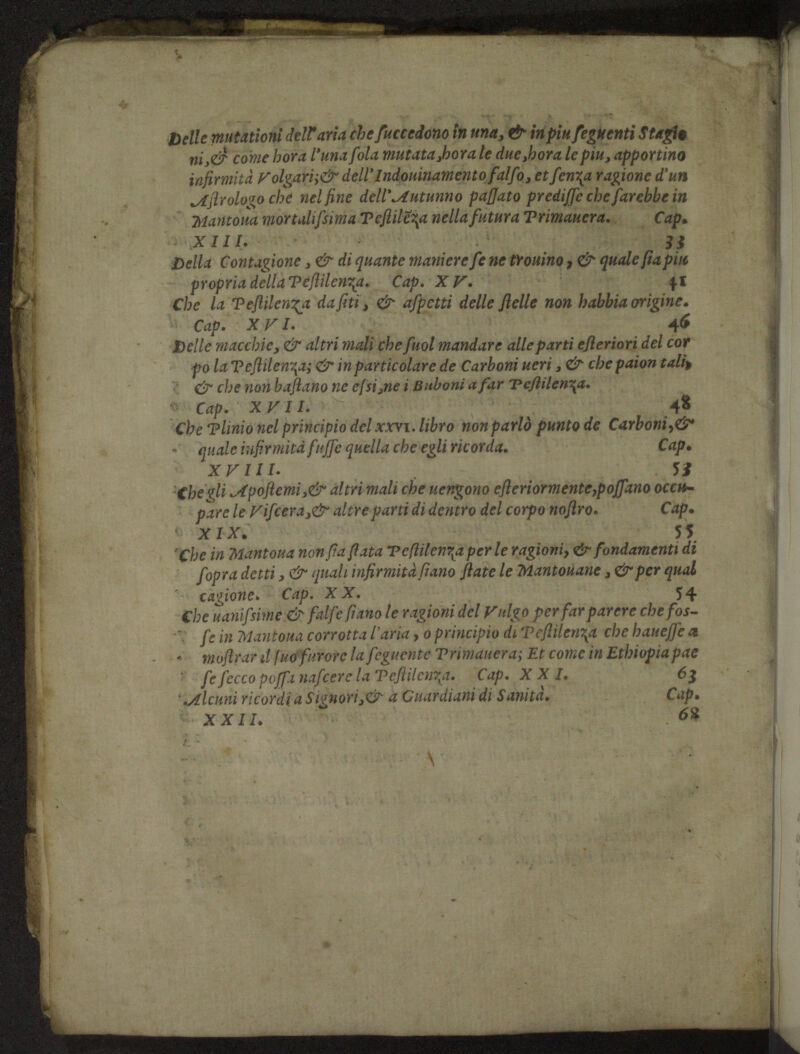 Delle mutationi dell'aria che ſuccedono in una, & in piu ſeguenti Stagio
ni,& come hora l'una ſola mutata,hora le due,hora le piu, apportino
infirmità Volgari;& dell'Indouinamento falſo, et ſenza ragione d'un
Aſtrologo che nel fine dell'Autunno paſſato prediſſe che ſarebbe in
Mantoua mortaliſsima Peſtilēza nella futura Primauera. Cap.
XIIII. 33
Della Contagione, & di quante maniere ſe ne trouino, & quale ſia piu
propria della Peſtilenza. Cap. XV. 41
Che la Peſtilenza da ſiti, & aſpetti delle ſtelle non habbia origine.
Cap. XVI. 46
Delle macchie, & altri mali che ſuol mandare alle parti eſteriori del cor
po la Peſtilenza; & in particolare de Carboni ueri, & che paion tali,
& che non baſtano ne eſsi,ne i Buboni a far Peſtilenza.
Cap. XVII. 48
Che Plinio nel principio del xxvi. libro non parlò punto de Carboni,&
quale infirmità fuſſe quella che egli ricorda. Cap.
XVIII. 53
Che gli Apoſtemi,& altri mali che uengono eſteriormente,poſſano occu-
pare le Viſcera,& altre parti di dentro del corpo noſtro. Cap.
XIX. 55
Che in Mantoua non ſia ſtata Peſtilenza per le ragioni, & fondamenti di
ſopra detti, & quali infirmità ſiano ſtate le Mantouane, & per qual
cagione. Cap. XX. 54
Che uaniſsime & falſe ſiano le ragioni del Vulgo per far parere che foſ-
ſe in Mantoua corrotta l'aria, o principio di Peſtilenza che haueſſe a
moſtrar il ſuo furore la ſeguente Primauera; Et come in Ethiopia pae
ſe ſecco poſſa naſcere la Peſtilenza. Cap. XXI. 63
Alcuni ricordi a Signori,& a Guardiani di Sanità. Cap.
XXII. 68